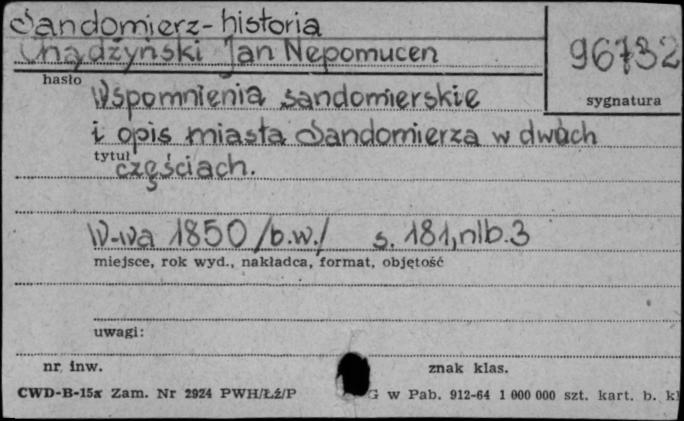 Sandomierz-historia
Chądżyński Jan Nepomucen
96732
hasło
Wspomnienia sandomierskie
sygnatura
i opis miasta Sandomierza w dwuch
tytuł
częściach.
W-wa 1850 /b.w./ s. 181, nlb. 3
miejsce, rok wyd., nakładca, format, objętość
uwagi:
nr inw.
znak klas.
CWD-B-15x Zam. Nr 2924 PWH/Łź/P G w Pab. 912-64 1 000 000 szt. kart. b. kl